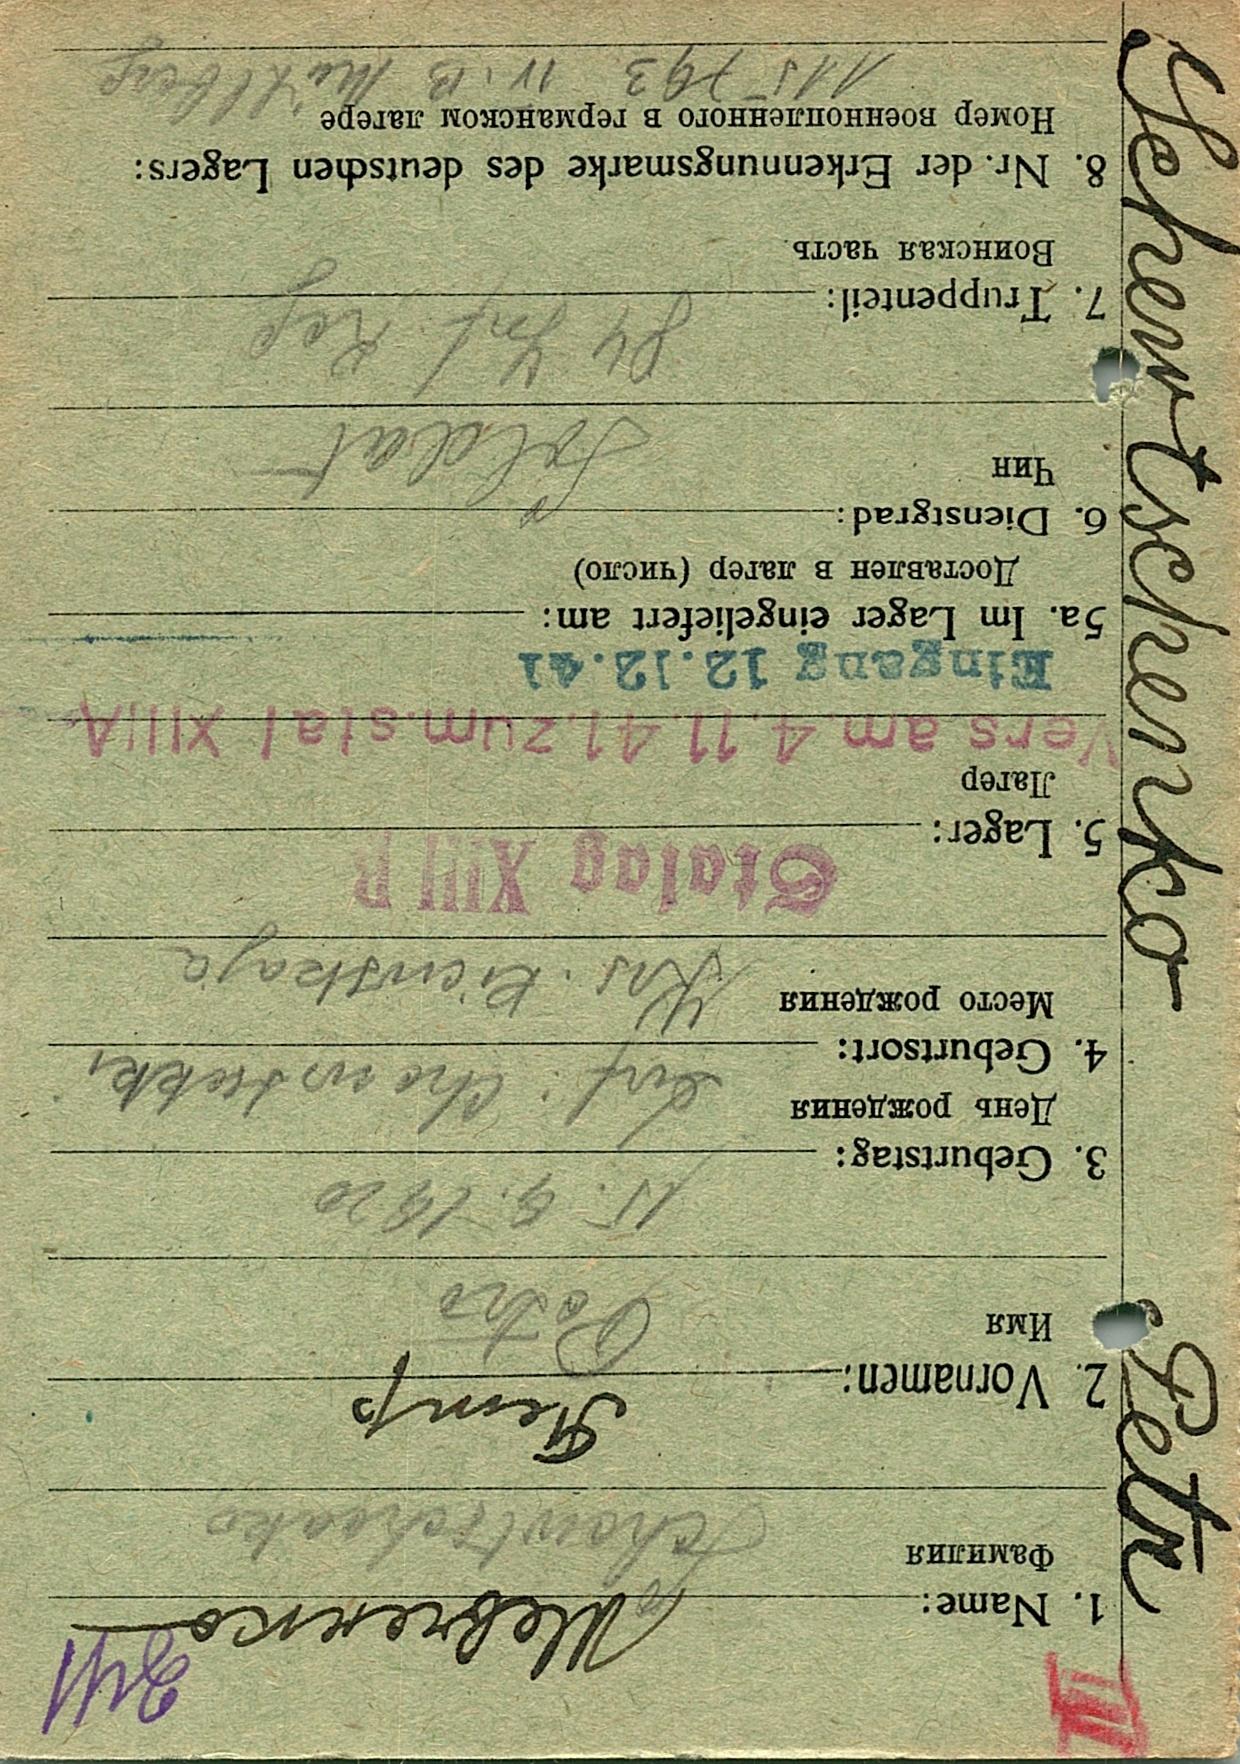 III
1. Name: Шевченко
Фамилия
Schewtschenko
Петр
2. Vornamen:
Имя
Petro
15. 9. 1920
3. Geburtstag:
День рождения
4. Geburtsort:
Место рождения
Kiewskaja
Stalag XIII B
5. Lager:
Лагер
Vers am 4.11.41.zum.stal XIII A
Eingang 12.12.41
5a. Im Lager eingeliefert am:
Доставлен в лагер (число)
6. Dienstgrad:
Чин
Soldat
84 Inf. Reg
7. Truppenteil:
Воинская часть
8. Nr. der Erkennungsmarke des deutschen Lagers:
Номер военнопленного в германском лагере
115 793 IV. B Mühlberg
Schewtschenko Petr